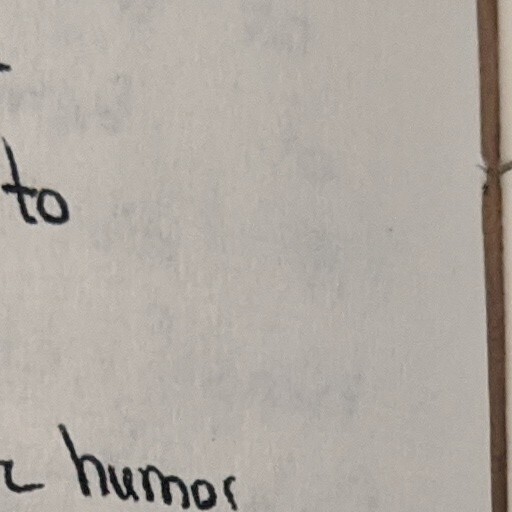 to
humor